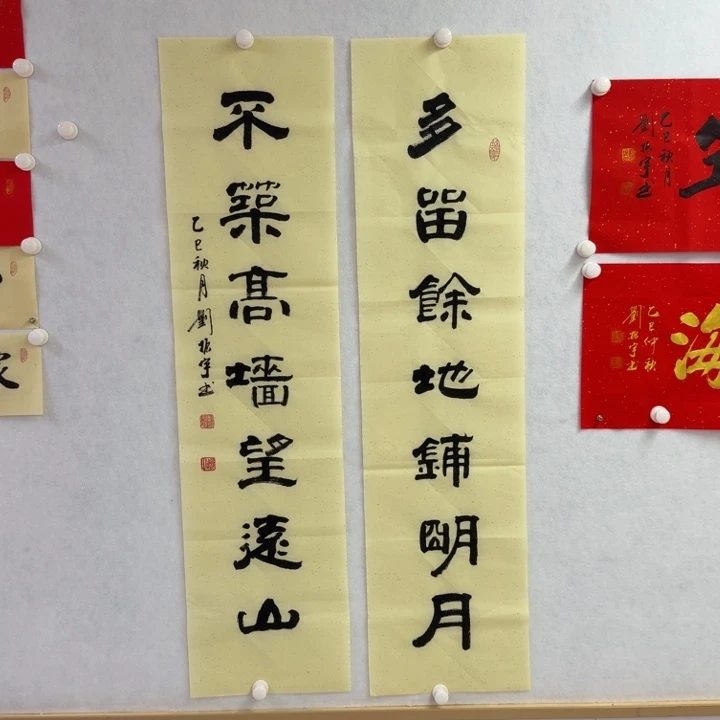 多留餘地鋪明月
不築高墻望遠山
乙巳秋月劉振宇书
乙巳秋月
劉振宇书
乙巳仲秋
劉振宇书
海